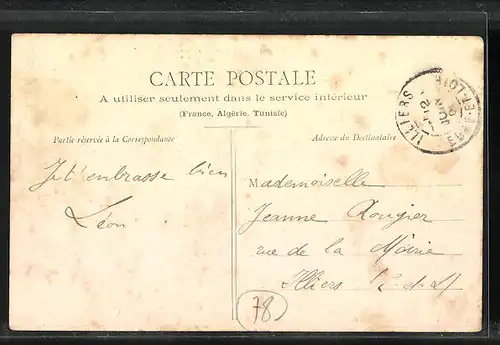 CARTE POSTALE
A utiliser seulement dans le service intérieur
(France, Algérie, Tunisie)
Partie réservée à la Correspondance
Adresse du Destinataire
ILLIERS
EURE-ET-LOIR
Je t'embrasse bien
Léon
Mademoiselle
Jeanne Rougier
rue de la Mairie
Illiers E-et-L
78